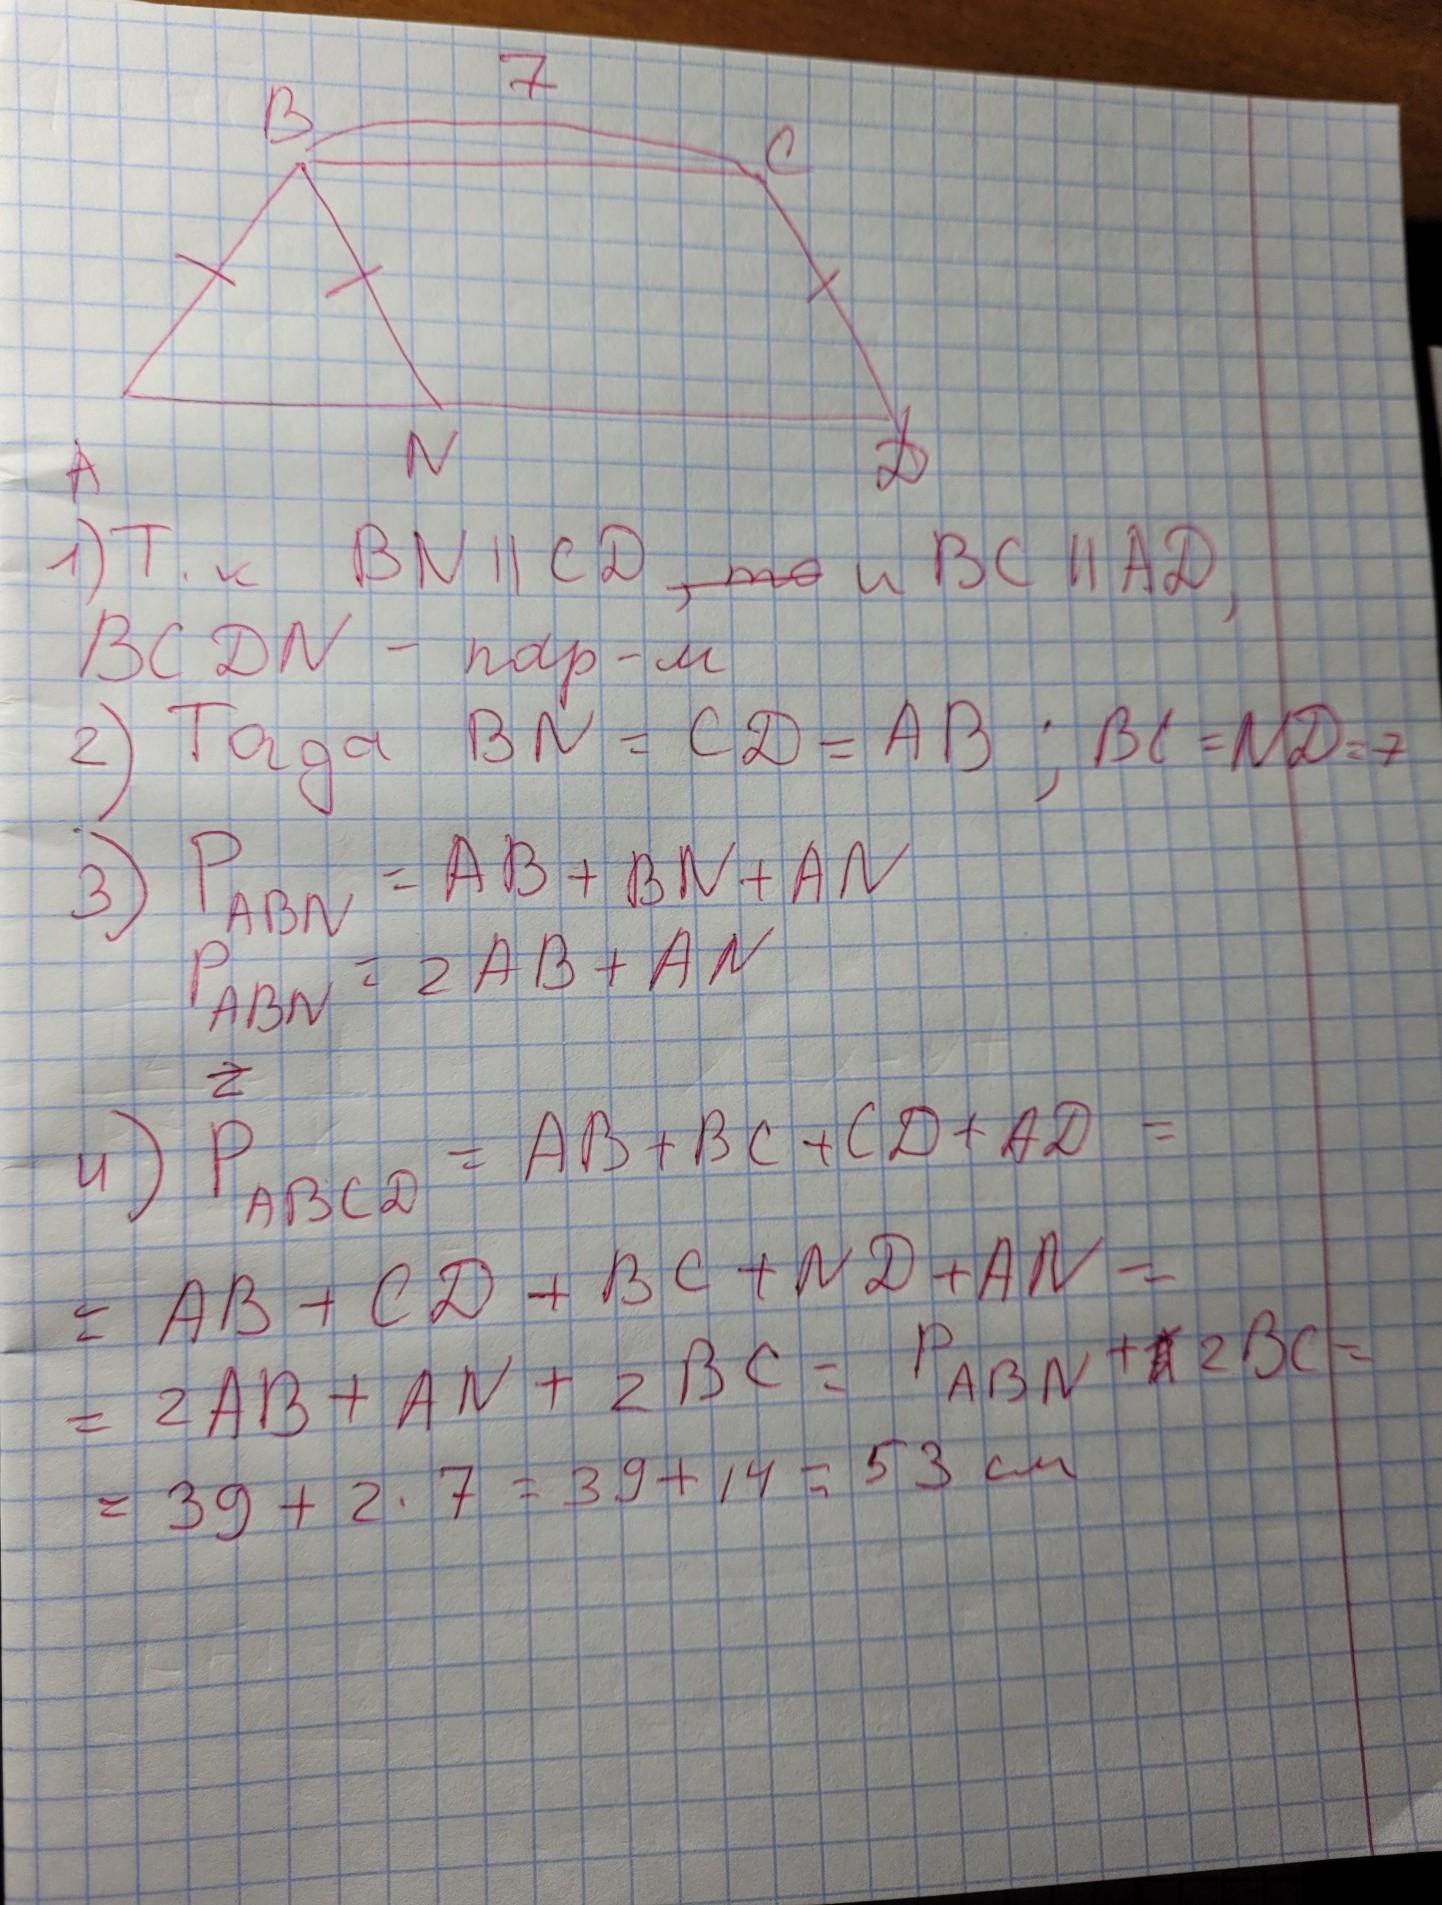 7
B
C
A
N
D
1) Т.к BN || CD, то и BC || AD,
BCDN - пар-м
2) Тогда BN = CD = AB ; BC = ND = 7
3) P ABN = AB + BN + AN
P ABN = 2AB + AN
4) P ABCD = AB + BC + CD + AD =
= AB + CD + BC + ND + AN =
= 2AB + AN + 2BC = P ABN + 2BC =
= 39 + 2 · 7 = 39 + 14 = 53 см